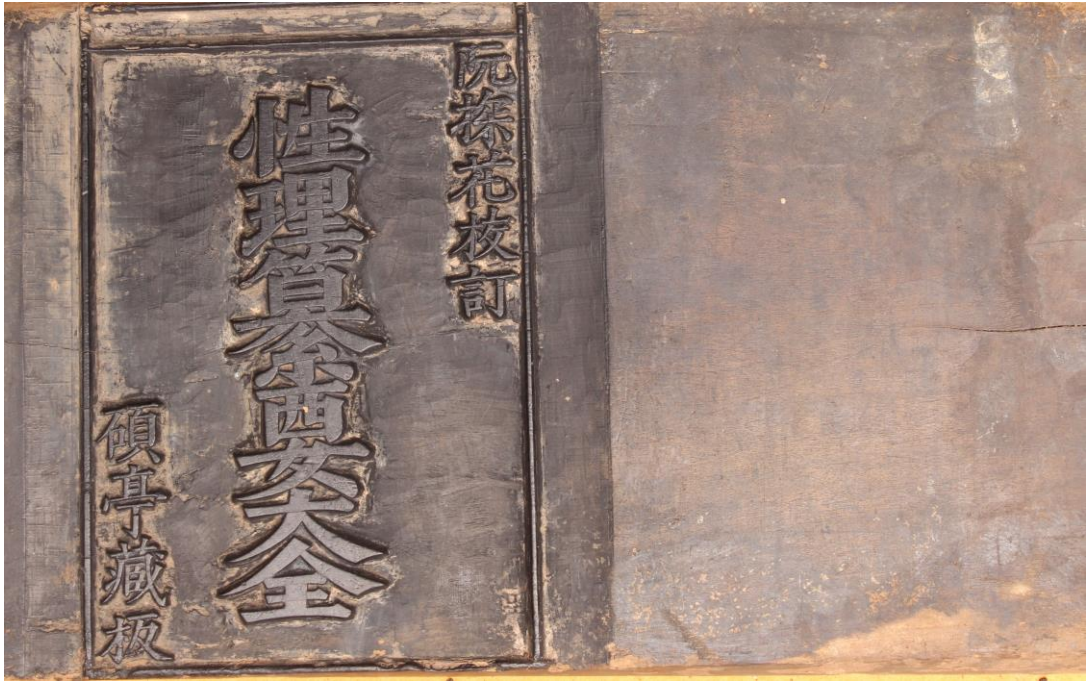 阮探花校訂
性理纂要大全
碩亭藏板